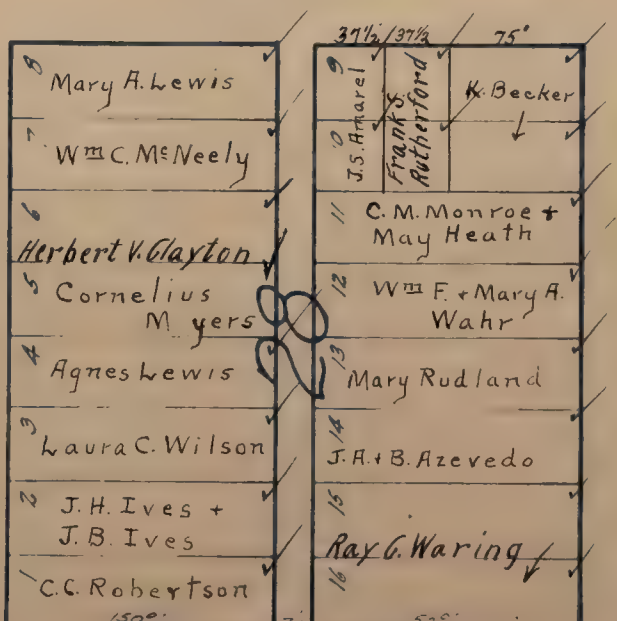 8
Mary A. Lewis
7
Wm C. McNeely
6
Herbert V. Clayton
5
Cornelius
Myers
4
Agnes Lewis
3
Laura C. Wilson
2
J. H. Ives +
J. B. Ives
1
C. C. Robertson
150°
28
37½
37½
75°
9
J. S. Amarel
Frank S.
Rutherford
K. Becker
11
C. M. Monroe +
May Heath
12
Wm F. + Mary A.
Wahr
13
Mary Rudland
14
J. A. + B. Azevedo
15
Ray G. Waring
16